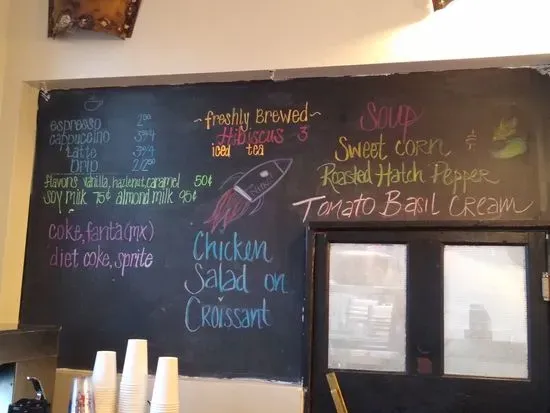 espresso 2⁰⁰
cappuccino
Latte
Drip 2/2⁵⁰
flavors vanilla, hazlenut, caramel 50¢
soy milk 75¢ almond milk 95¢
coke, fanta (mx)
diet coke, sprite
~freshly Brewed~
Hibiscus 3
iced tea
Chicken
Salad on
Croissant
Soup
Sweet corn &
Roasted Hatch Pepper
Tomato Basil Cream